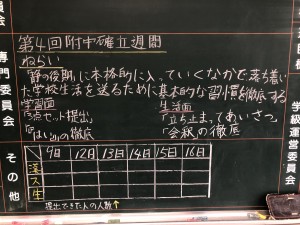 第4回附中確立週間
ねらい
「静の後期」に本格的に入っていくなかで落ち着い
た学校生活を送るために基本的な習慣を徹底する
学習面 生活面
「3点セット提出」 「立ち止まってあいさつ」
「はい」の徹底 「会釈」の徹底
9日 12日 13日 14日 15日 16日
ス
生
提出できた人の人数↑
員会
専門委員会
その他
学級運営委員会